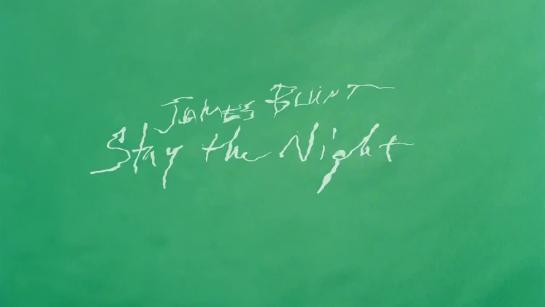 James Blunt
Stay the Night